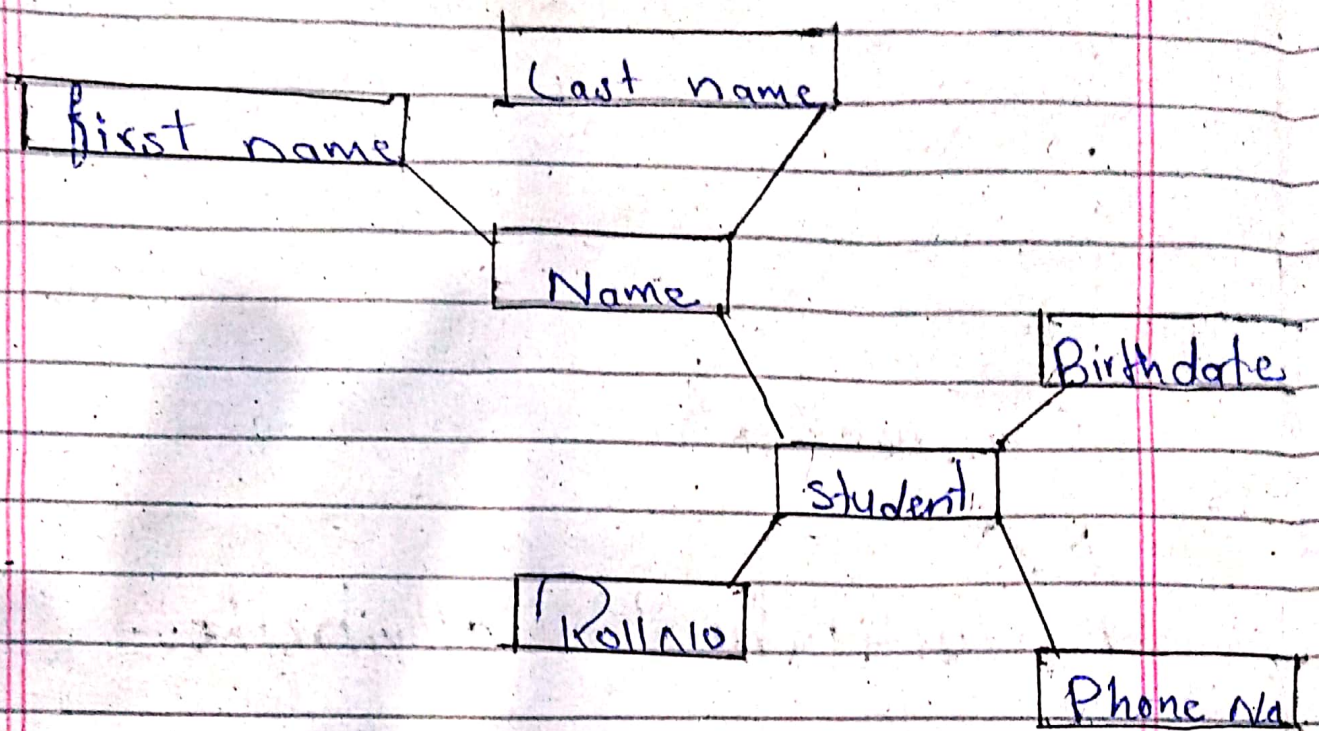 Last name
first name
Name
Birthdate
Student
Roll No
Phone No